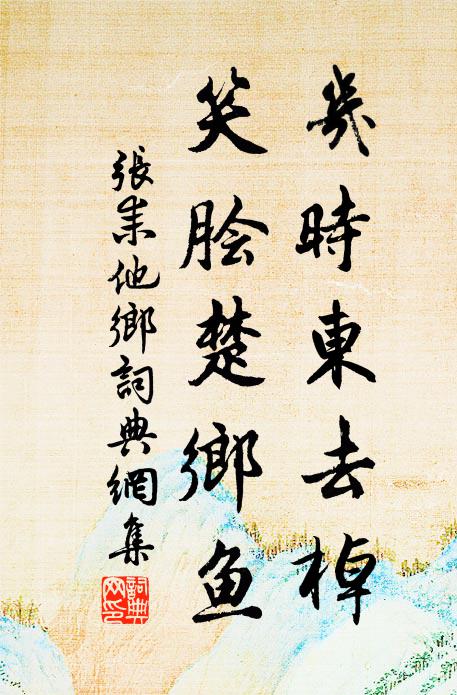 幾時東去棹
笑脍楚鄉魚
張耒他鄉詞典網集
詞典網印